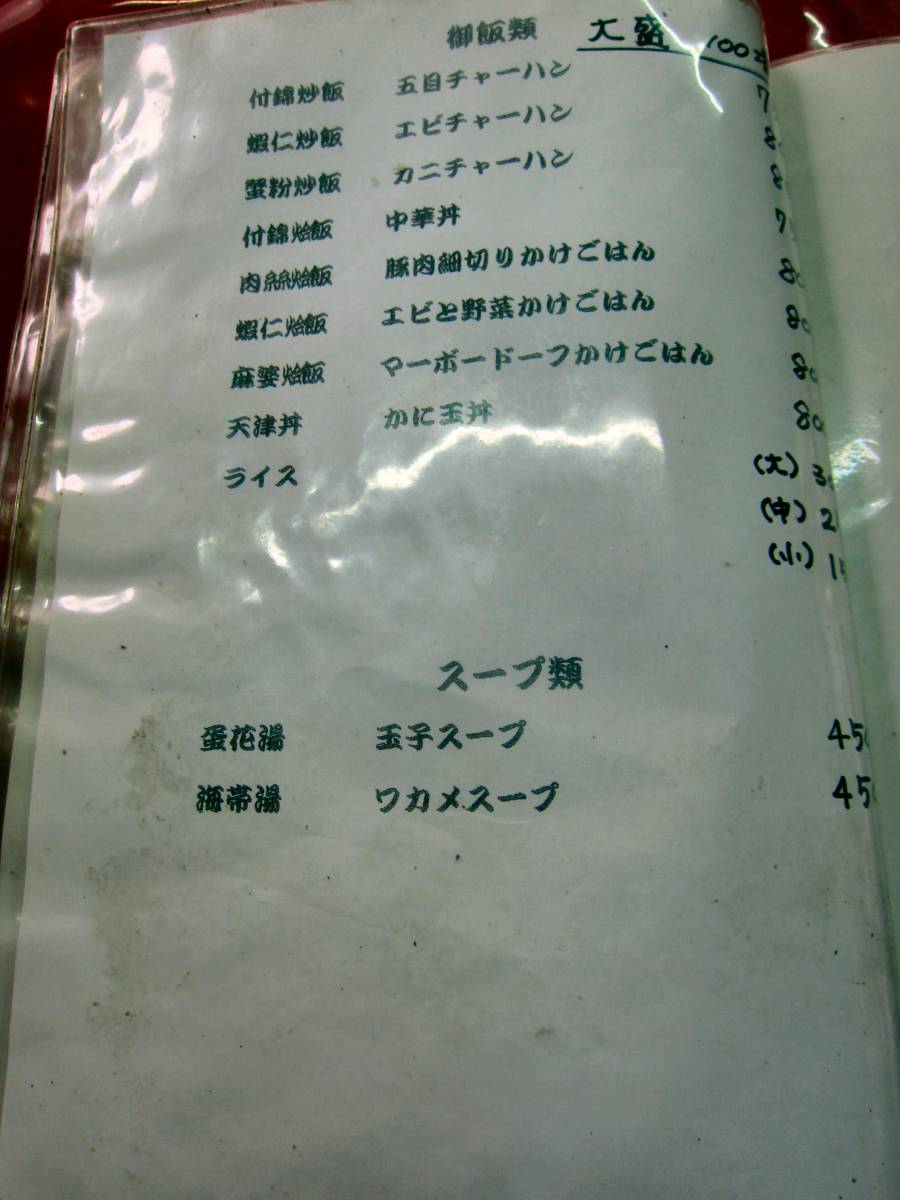 御飯類 大盛 100
付錦炒飯 五目チャーハン 7
蝦仁炒飯 エビチャーハン 8
蟹粉炒飯 カニチャーハン 8
付錦烩飯 中華丼 7
肉絲烩飯 豚肉細切りかけごはん 80
蝦仁烩飯 エビと野菜かけごはん 80
麻婆烩飯 マーボードーフかけごはん 80
天津丼 かに玉丼 80
ライス (大) 3
(中) 2
(小) 1
スープ類
蛋花湯 玉子スープ 450
海帯湯 ワカメスープ 450